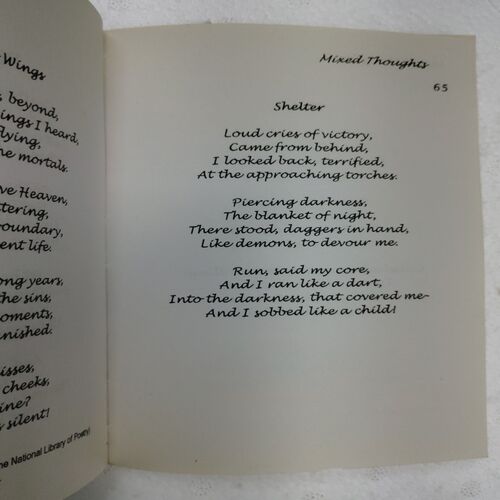 Wings
beyond,
ings I heard,
lying,
mortals.
Heaven,
tering,
oundary,
ent life.
ong years,
the sins,
oments,
nished.
isses,
cheeks,
ine?
silent!
he National Library of Poetry)
Mixed Thoughts
65
Shelter
Loud cries of victory,
Came from behind,
I looked back, terrified,
At the approaching torches.
Piercing darkness,
The blanket of night,
There stood, daggers in hand,
Like demons, to devour me.
Run, said my core,
And I ran like a dart,
Into the darkness, that covered me-
And I sobbed like a child!